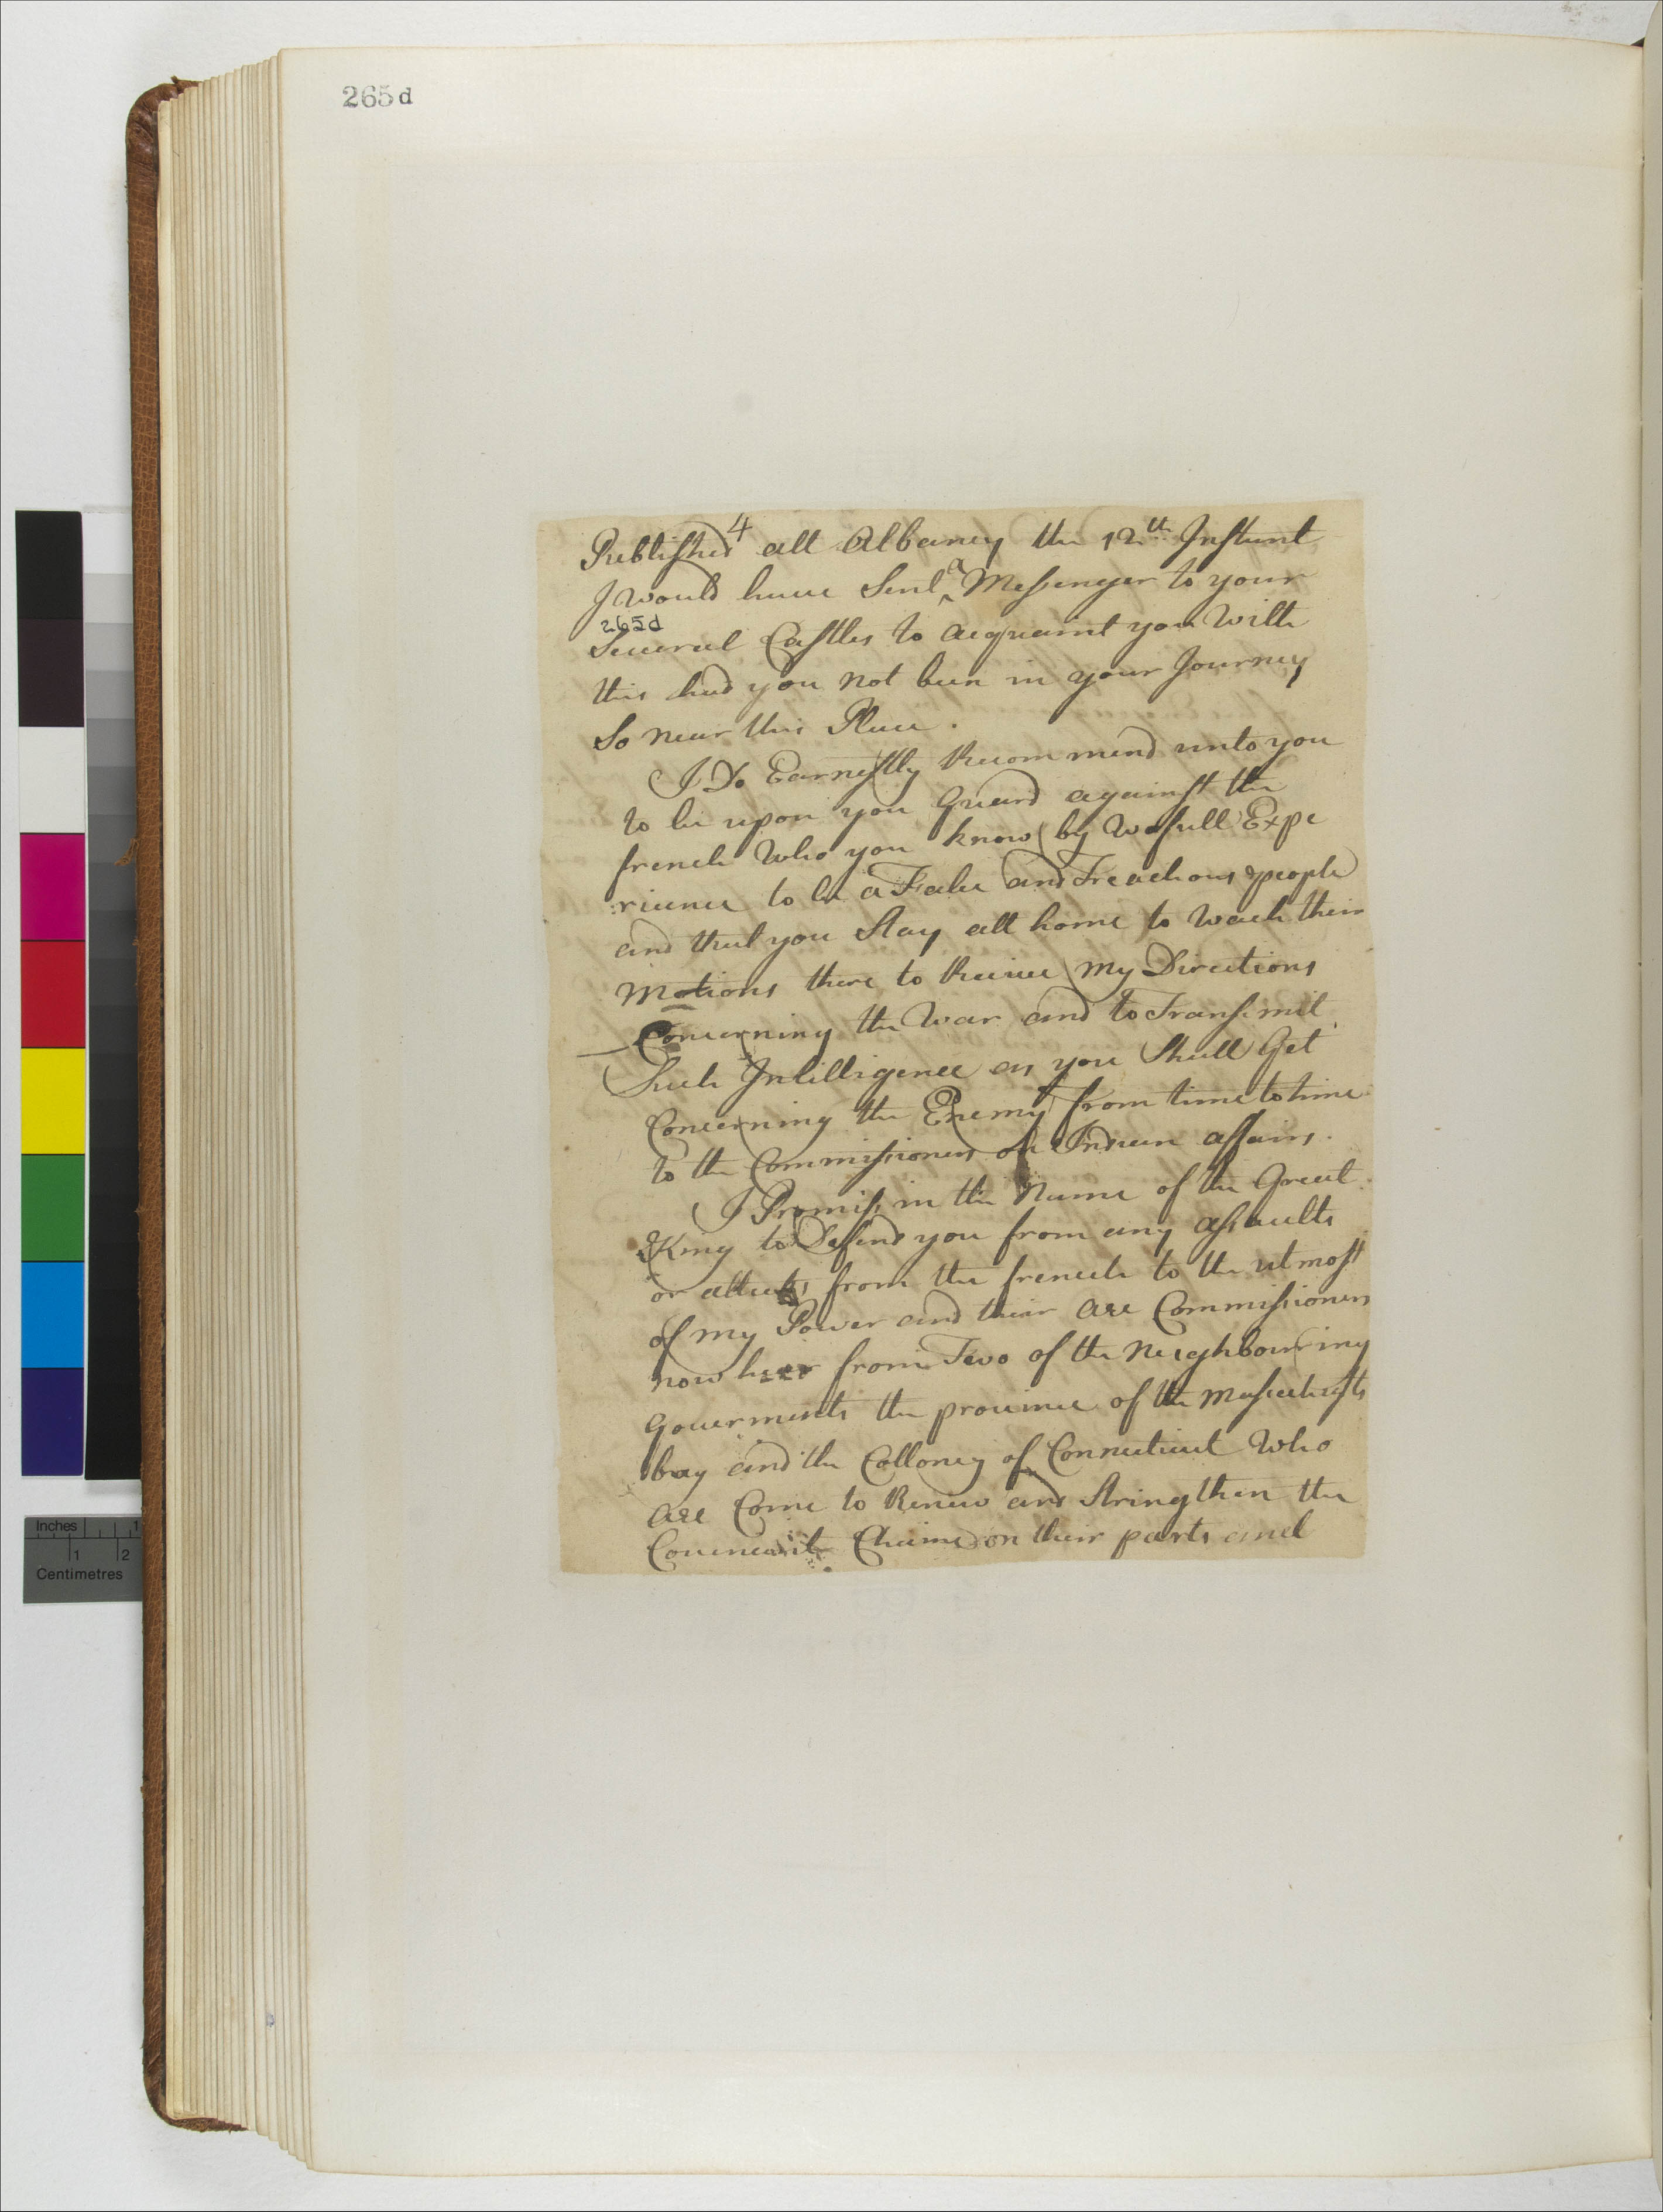 265d
4
Published att Albaney the 12th Instant
I would haue Sent a Messenger to your
265d
Seueral Castles to acquaint you With
this had you not been in your Journey
So near this Place.
I Do Earnestly Recommend unto you
to be upon you Guard against the
french Who you know by Wofull Expe
rience to be a False and Treachous people
and that you Stay att home to Wach their
Motions there to Receiue My Directions
Concerning the War and to Transmit
Such Intilligence as you Shall Get
Concerning the Enemy from time to time
to the Commissioners of Indian affairs.
I Promiss in the Name of the Great
King to Defend you from any assaults
or attacks from the french to the utmost
of my Power and their are Commissioners
now heer from Two of the Neighbouring
Gouerments the prouince of the Massachusts
bay and the Colloney of Connecticut Who
are Come to Renew and Stringthen the
Couenant Chaine on their parts and
Inches 1
1 2
Centimetres